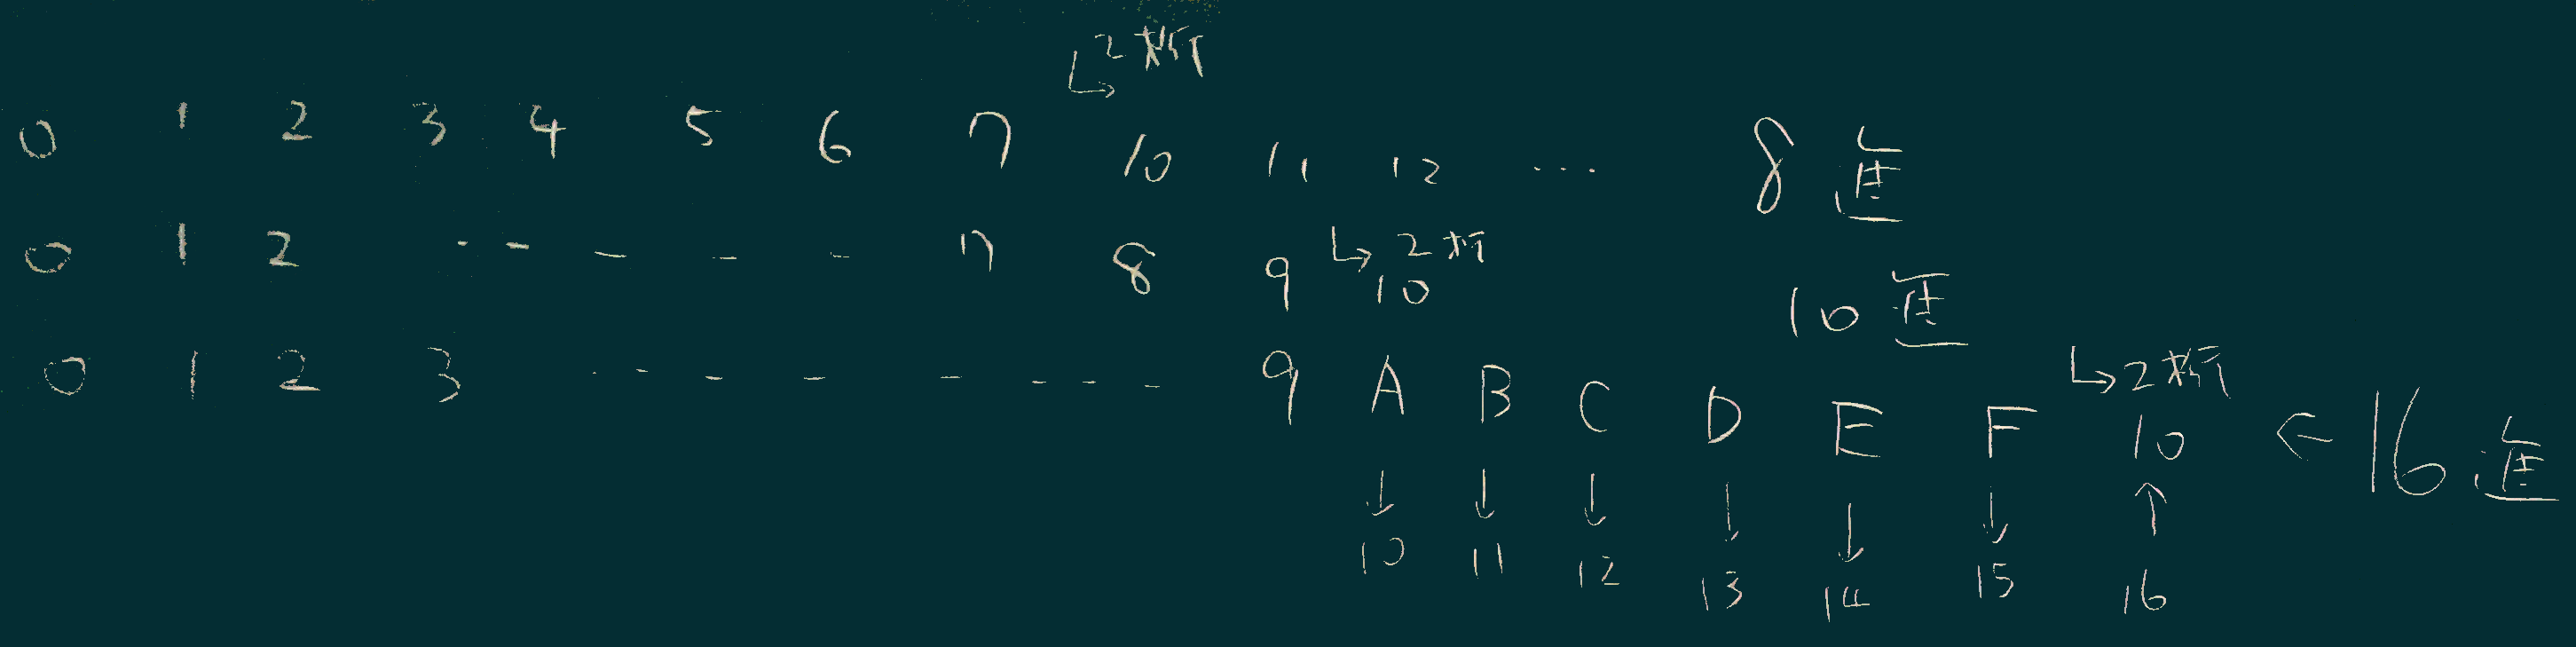 ↳2桁
0 1 2 3 4 5 6 7 10 11 12 ... 8進
0 1 2 -- - - - 7 8 9 ↳2桁 10 10進
0 1 2 3 -- - - - --- 9 A B C D E F ↳2桁 10 ← 16進
↓ ↓ ↓ ↓ ↓ ↓ ↑
10 11 12 13 14 15 16